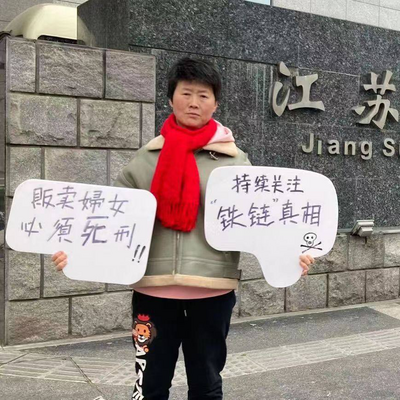 江苏
Jiang S
贩卖婦女
必須死刑!!
持续关注
"铁链"真相